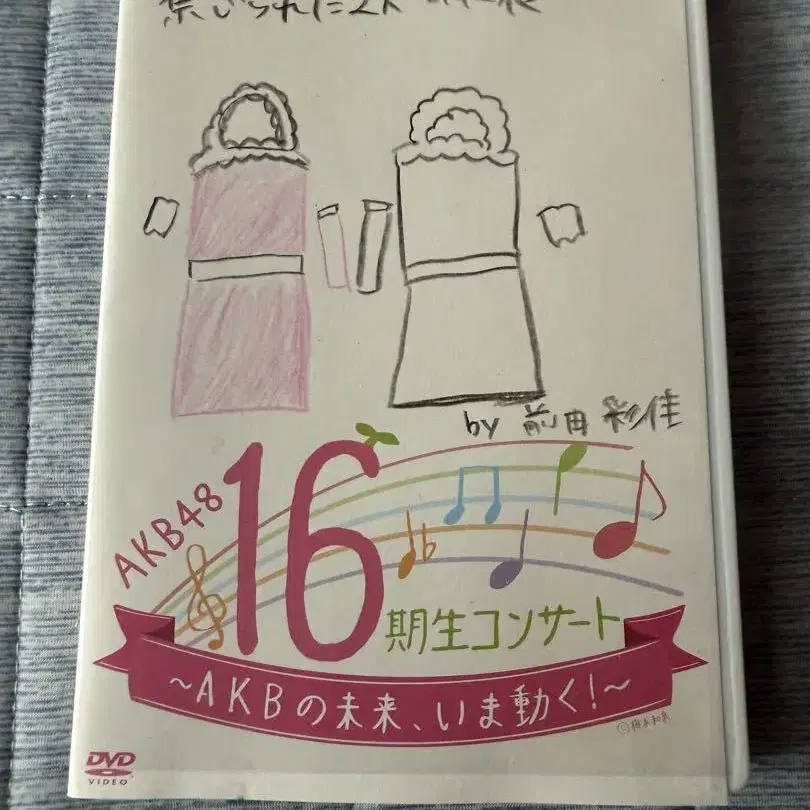 禁じられた2人
by 前田 彩佳
AKB48
16
期生コンサート
～AKBの未来、いま動く!～
DVD
VIDEO